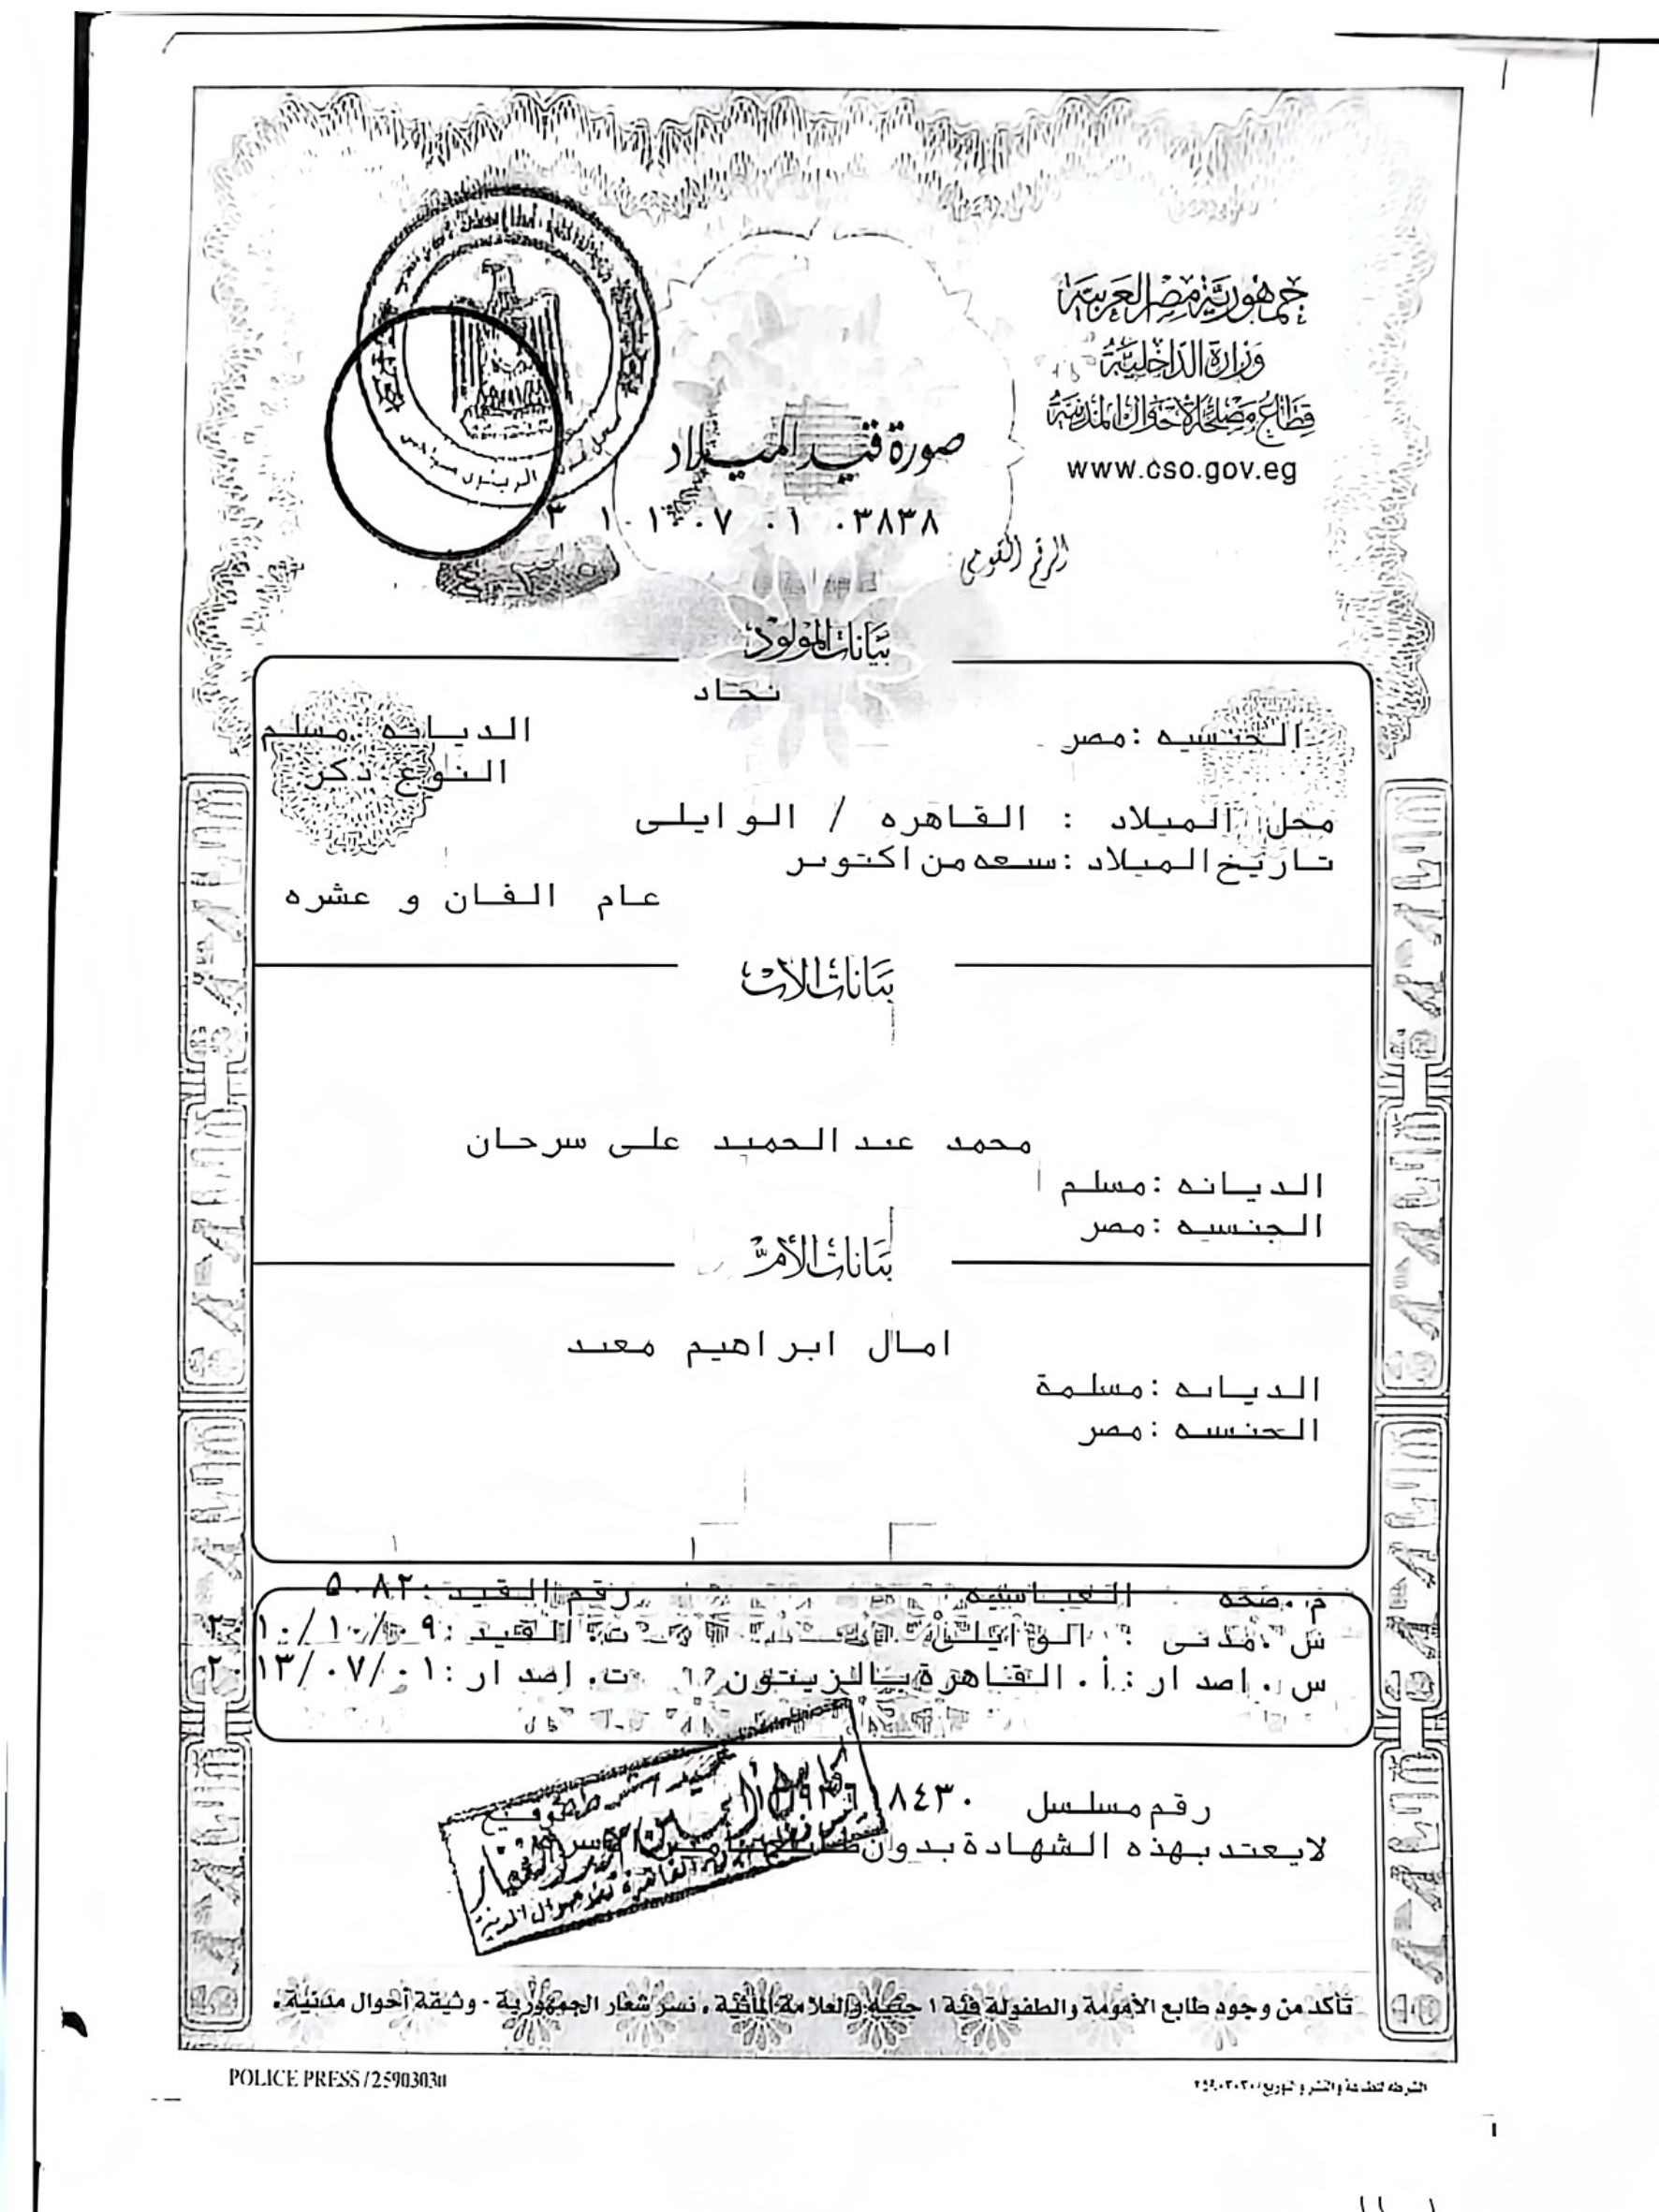 جمهورية مصر العربية
وزارة الداخلية
قطاع مصلحة الأحوال المدنية
www.cso.gov.eg
صورة قيد الميلاد
٠٣٨٣٨ ٠١
الرقم القومى
بيانات المولود
الجنسيه : مصر
الديانه : مسلم
النوع : ذكر
محل الميلاد : القاهره / الوايلى
تاريخ الميلاد : سبعه من اكتوبر
عام الفان و عشره
بيانات الأب
محمد عبد الحميد على سرحان
الديانه : مسلم
الجنسيه : مصر
بيانات الأم
امال ابراهيم معبد
الديانه : مسلمة
الجنسيه : مصر
م . صحه : العباسيه رقم القيد : ٥٠٨٢
س . مدنى : الوايلى ت . القيد : ٢٠١٠/١٠/٠٩
س . اصدار : أ . القاهرة بالزيتون ت . إصدار : ٢٠١٣/٠٧/٠١
رقم مسلسل
لايعتد بهذه الشهادة بدون
تأكد من وجود طابع الأمومة والطفولة فئة ١ جنيه والعلامة المائية ، نسر شعار الجمهورية - وثيقة أحوال مدنية ،
POLICE PRESS / 25903030
الشرطه للطباعة والنشر والتوزيع / ٢٥٩٠٣٠٣٠